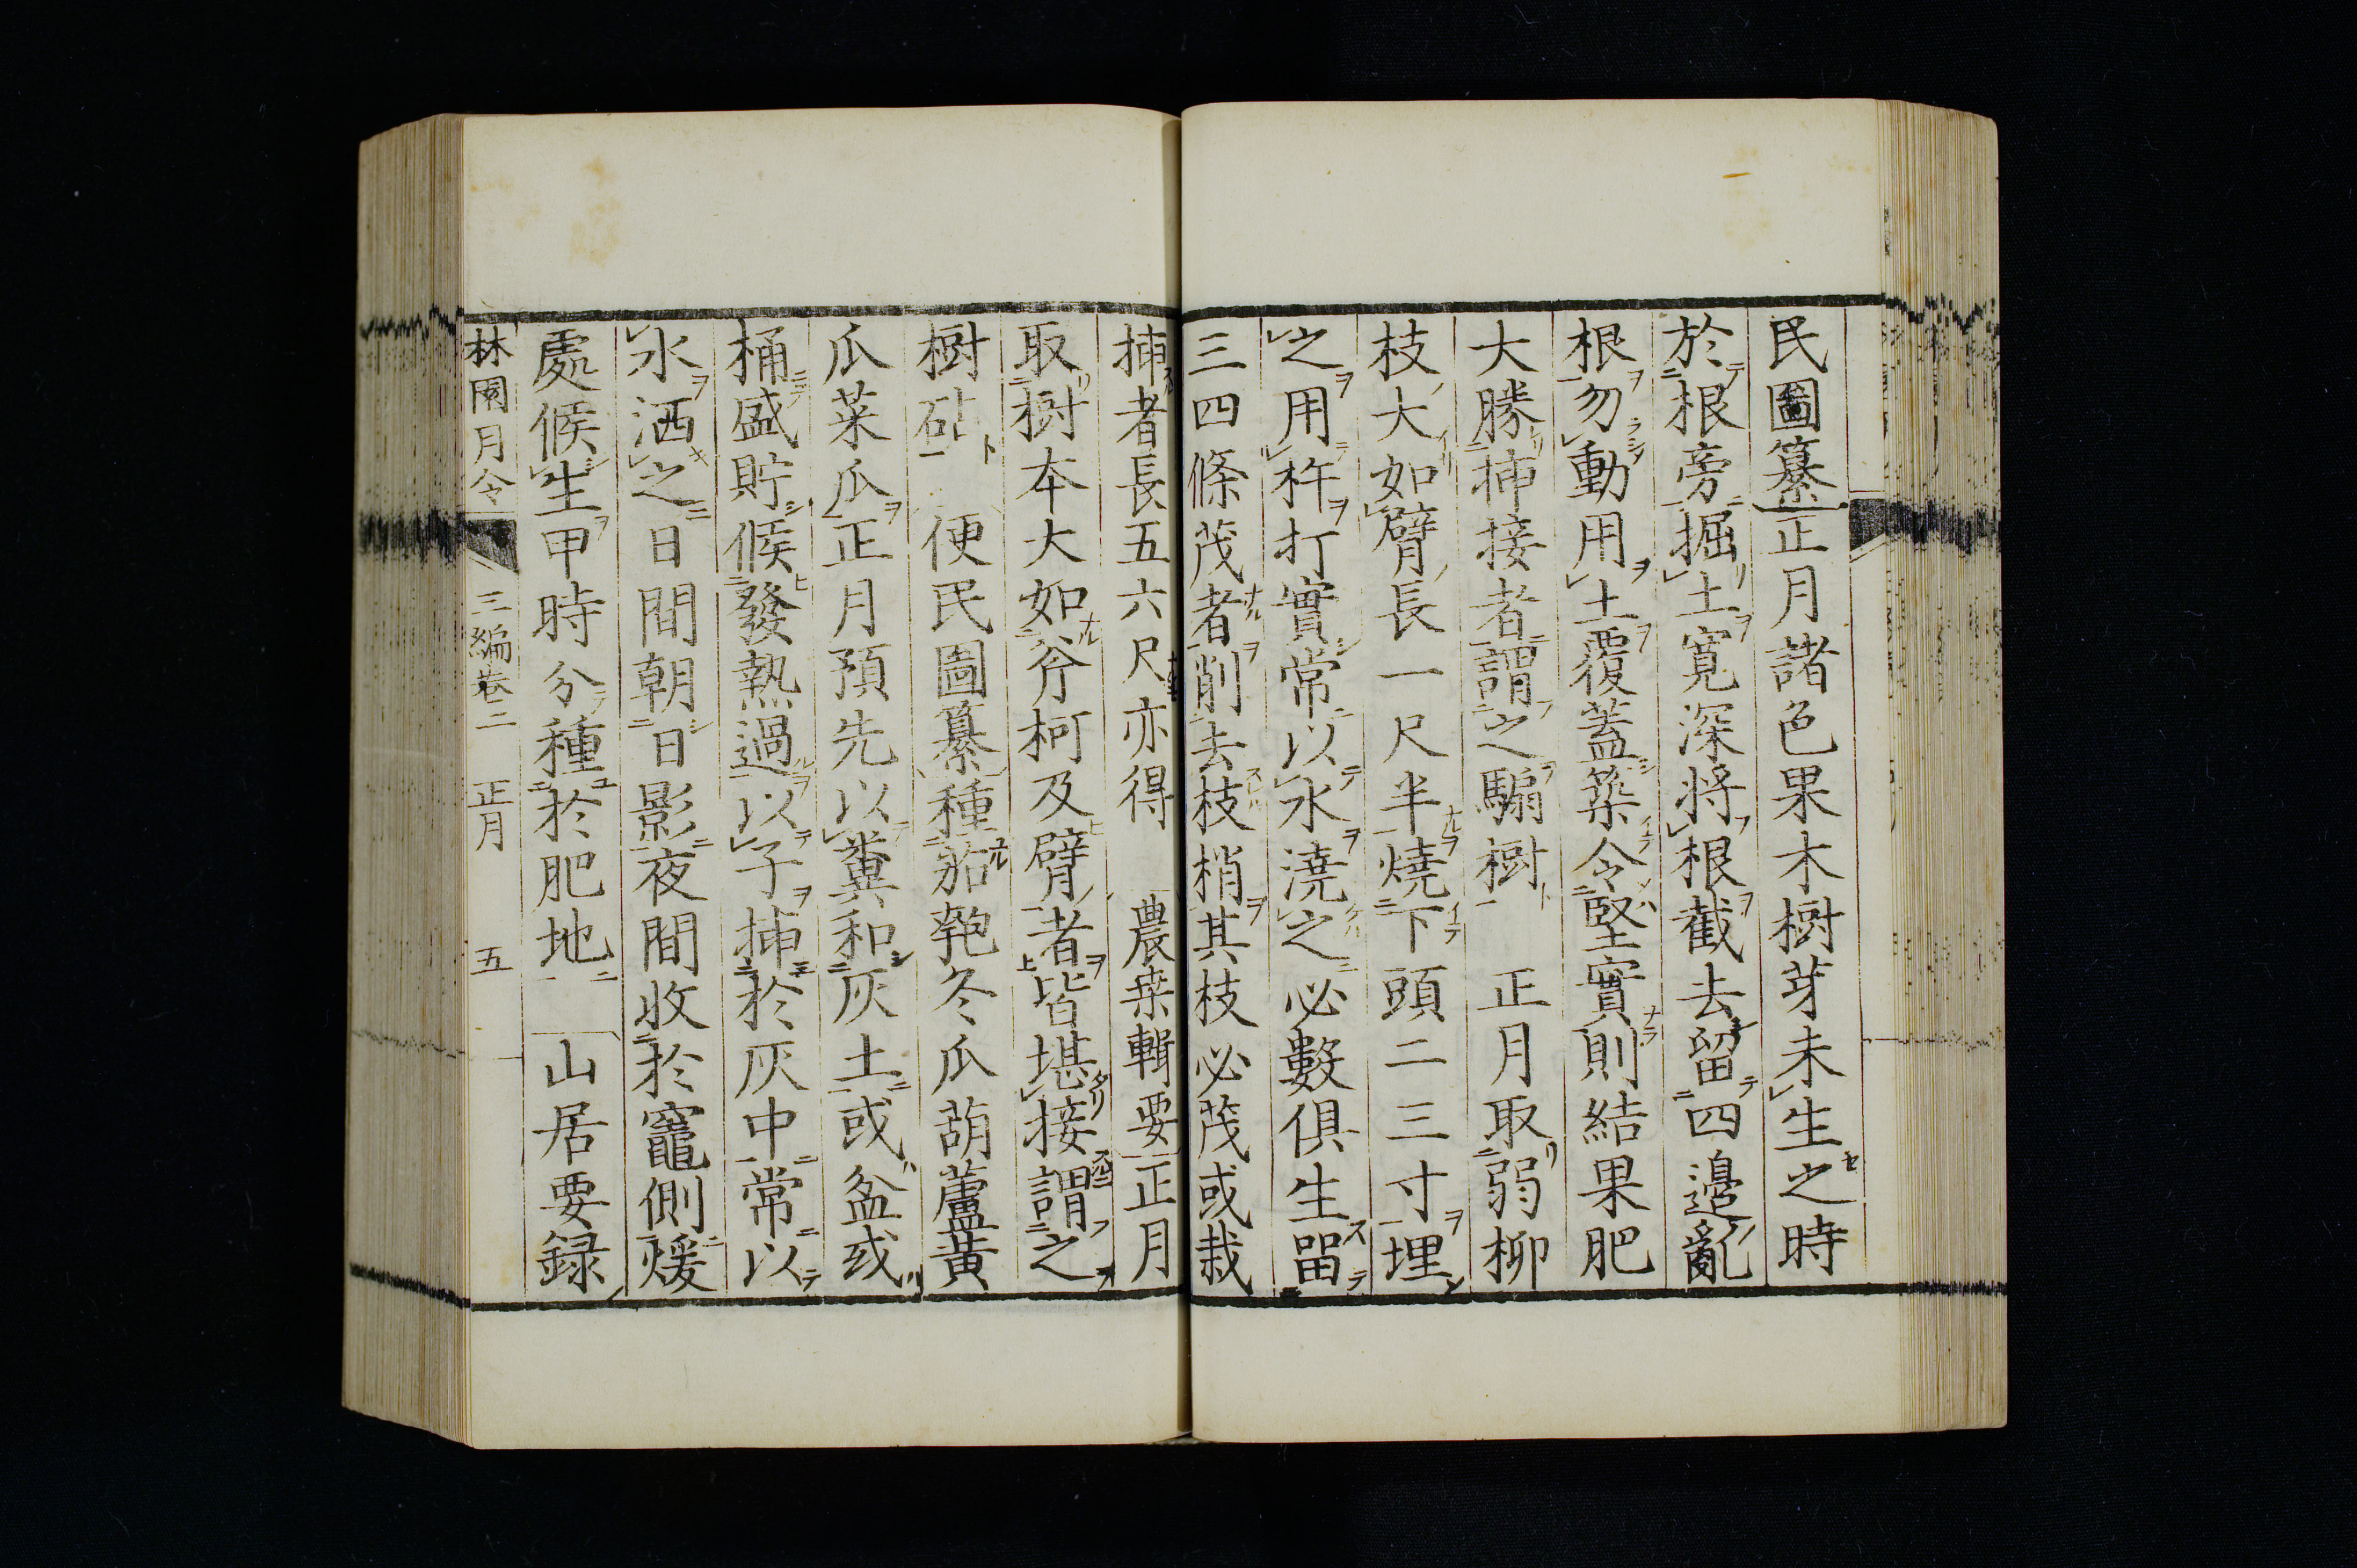 民圖纂正月諸色果木樹芽未生之時
於根旁掘土寛深將根截去留四邉亂
根勿動用土覆蓋築令堅實則結果肥
大勝揷接者謂之騸樹　正月取弱柳
枝大如臂長一尺半燒下頭二三寸埋
之用杵打實常以水澆之必數俱生留
三四條茂者削去枝梢其枝必茂或栽
揷者長五六尺亦得　農桒輯要正月
取樹本大如斧柯及臂者皆堪接謂之
樹砧　便民圖纂種茄匏冬瓜葫蘆黄
瓜菜瓜正月預先以糞和灰土或盆或
桶盛貯候發熱過以子揷於灰中常以
水洒之日間朝日影夜間收於竈側煖
處候生甲時分種於肥地　山居要録
林園月令　三編巻二　正月　五